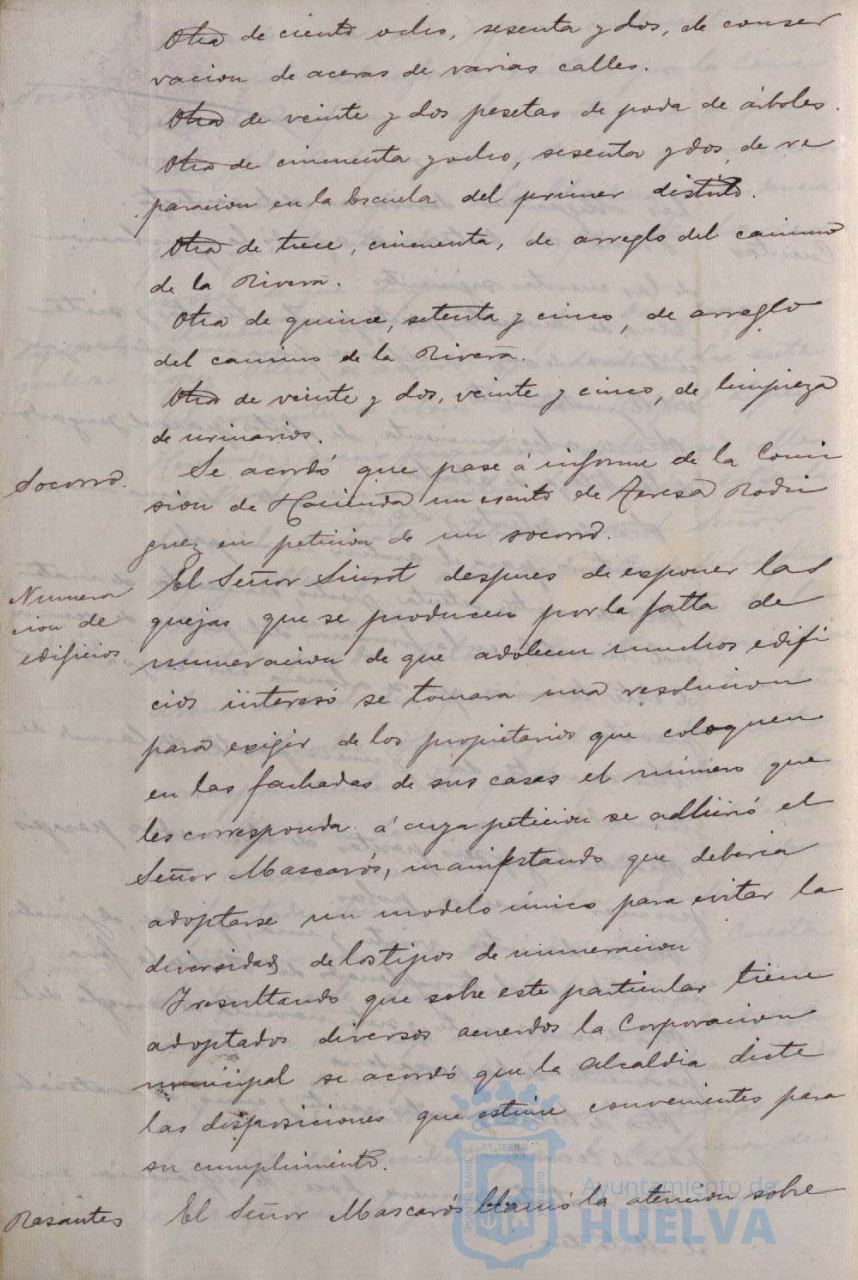 Otra de ciento ocho, sesenta y dos, de conser
vacion de aceras de varias calles.
Otra de veinte y dos pesetas de poda de árboles.
Otra de cincuenta y ocho, sesenta y dos, de re
paracion en la Escuela del primer distrito.
Otra de trece, cincuenta, de arreglo del camino
de la Rivera.
Otra de quince, setenta y cinco, de arreglo
del camino de la Rivera.
Otra de veinte y dos, veinte y cinco, de limpieza
de urinarios.
Socorro.
Se acordó que pase á informe de la Comi
sion de Hacienda un escrito de Teresa Rodri
guez en peticion de un socorro.
Numera
cion de
edificios
El Señor Siurot despues de exponer las
quejas que se producen por la falta de
numeracion de que adolecen muchos edifi
cios interesó se tomara una resolucion
para exigir de los propietarios que coloquen
en las fachadas de sus casas el número que
les corresponda á cuya peticion se adhirió el
Señor Mascarós, manifestando que deberia
adoptarse un modelo único para evitar la
diversidad de los tipos de numeracion
Y resultando que sobre este particular tiene
adoptados diversos acuerdos la Corporacion
municipal se acordó que la Alcaldia dicte
las disposiciones que estime convenientes para
su cumplimiento.
Rasantes
El Señor Mascarós llamó la atencion sobre
Ayuntamiento de
HUELVA